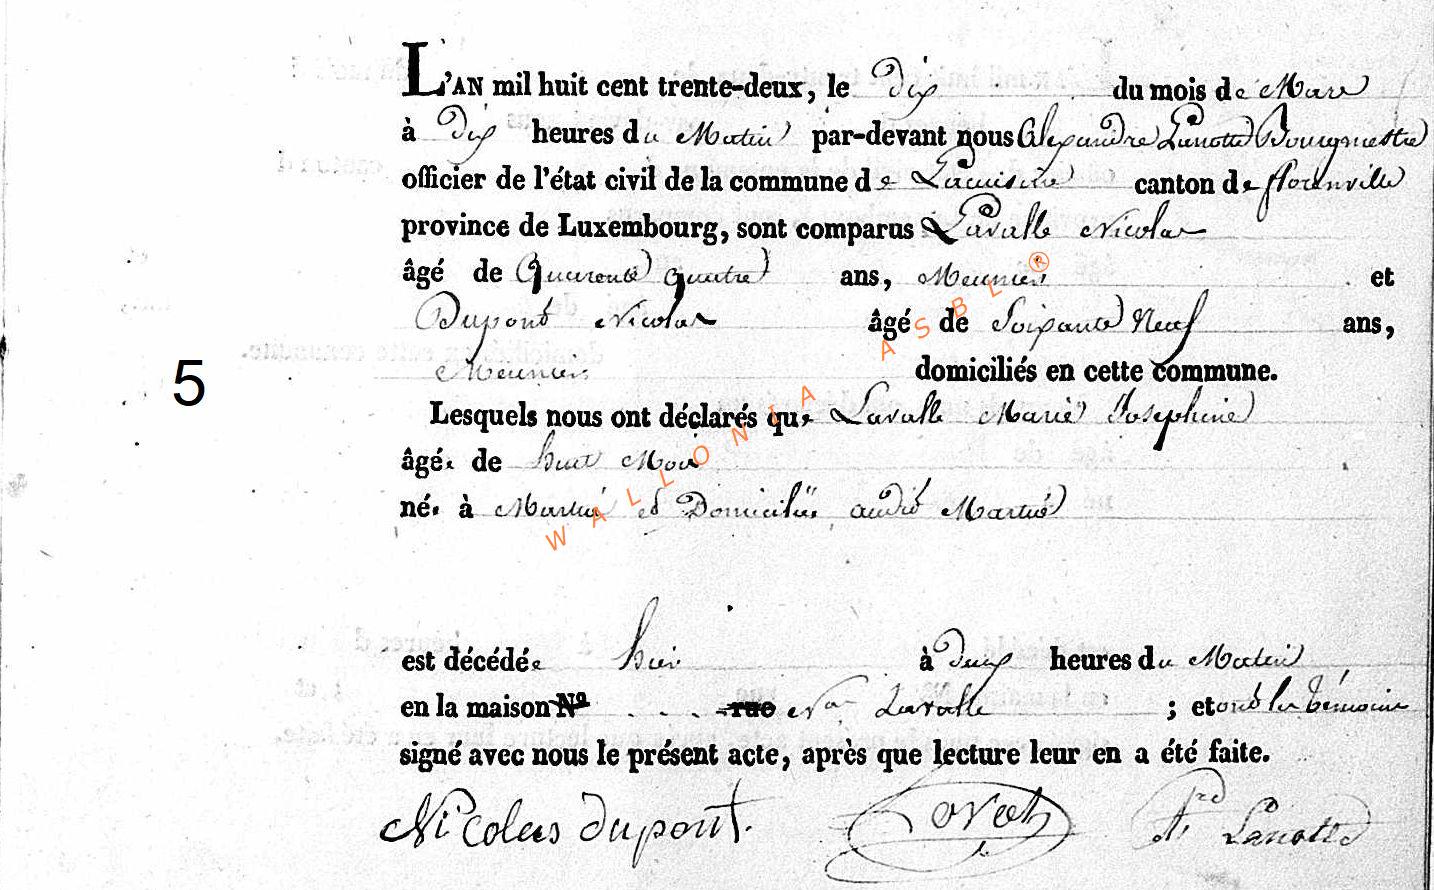 L'AN mil huit cent trente-deux, le dix du mois de Mars
à Dix heures du Matin par-devant nous Alexandre Lanotte Bourgmestre
officier de l'état civil de la commune de Lacuisine canton de florenville
province de Luxembourg, sont comparus Lavalle Nicolas
âgé de Quarente quatre ans, Meunier et
Dupont Nicolas âgé de Soixante Neuf ans,
Meunier domiciliés en cette commune.
5
Lesquels nous ont déclarés que Lavalle Marie Josephine
âgée de huit Mois
née à Martué et Domiciliée audit Martué
est décédée hier à deux heures du Matin
en la maison Nº rue Nas Lavalle ; et ont les témoins
signé avec nous le présent acte, après que lecture leur en a été faite.
Nicolas dupont. Lanotte
WALLONIA ASBL ®